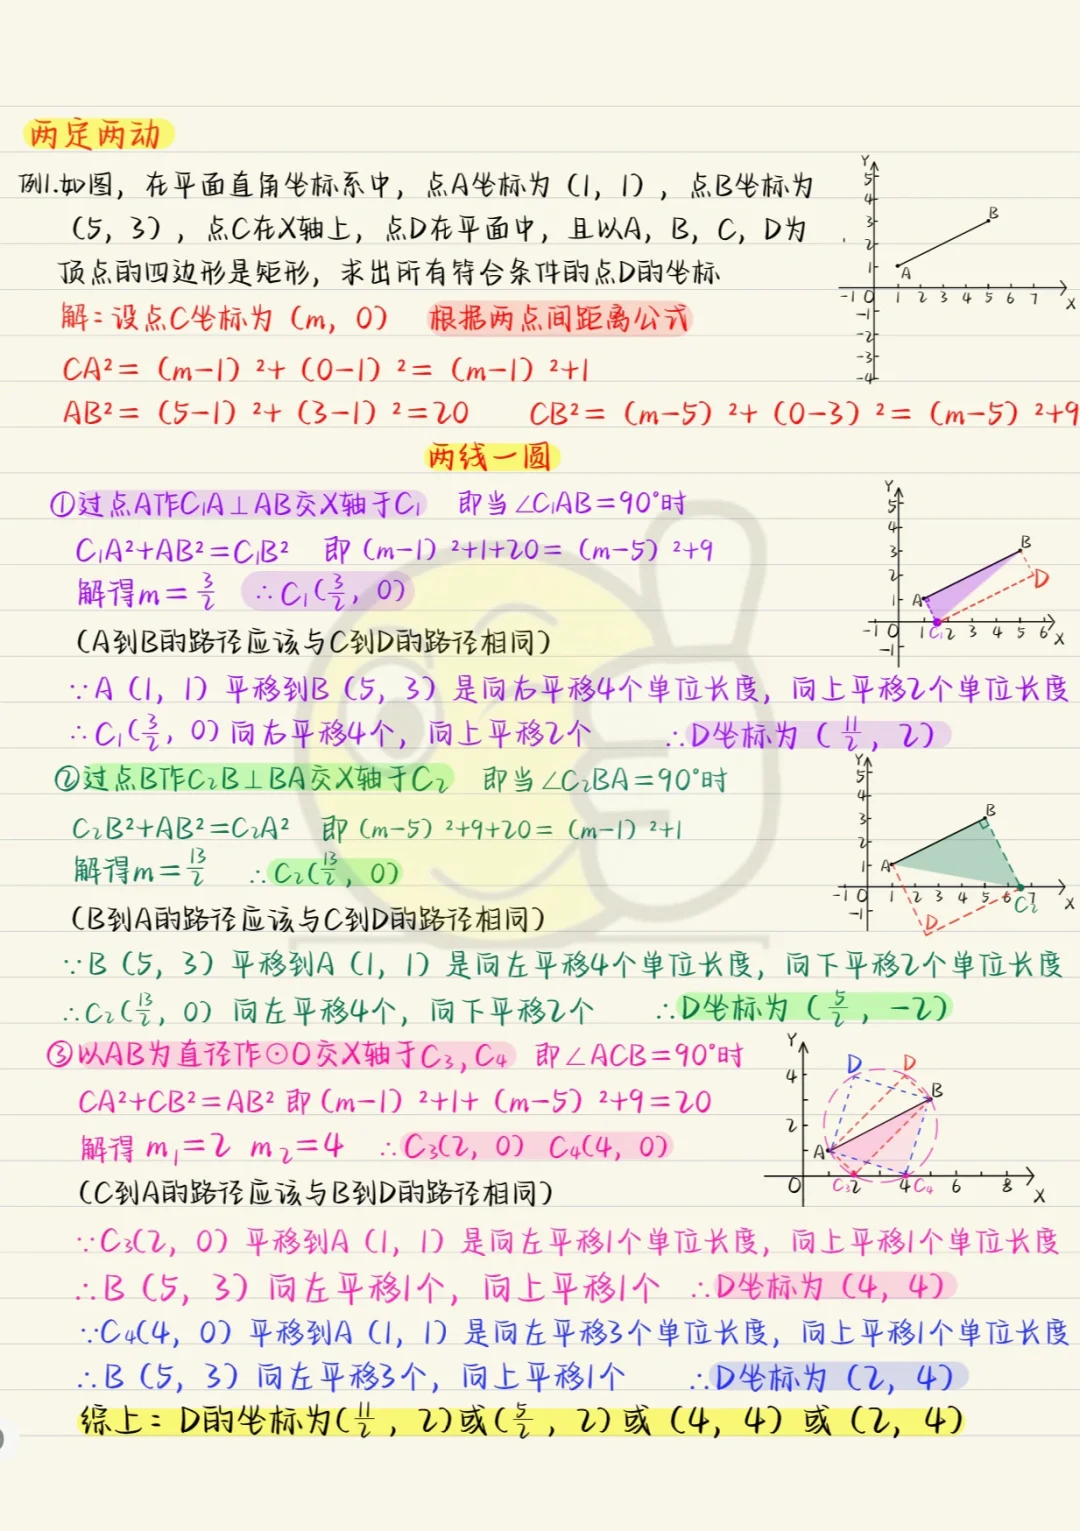 两定两动
例1.如图，在平面直角坐标系中，点A坐标为（1，1），点B坐标为
（5，3），点C在X轴上，点D在平面中，且以A，B，C，D为
顶点的四边形是矩形，求出所有符合条件的点D的坐标
Y
5
4
3
2
1
-1 0 1 2 3 4 5 6 7 X
-1
-2
-3
-4
A
B
解：设点C坐标为（m，0） 根据两点间距离公式
CA²=（m-1）²+（0-1）²=（m-1）²+1
AB²=（5-1）²+（3-1）²=20 CB²=（m-5）²+（0-3）²=（m-5）²+9
两线一圆
①过点A作C₁A⊥AB交X轴于C₁ 即当∠C₁AB=90°时
C₁A²+AB²=C₁B² 即（m-1）²+1+20=（m-5）²+9
解得m=3/2 ∴C₁(3/2，0)
（A到B的路径应该与C到D的路径相同）
Y
5
4
3
2
1
-1 0 1 C₁ 2 3 4 5 6 X
-1
A
B
D
∵A（1，1）平移到B（5，3）是向右平移4个单位长度，向上平移2个单位长度
∴C₁(3/2，0)向右平移4个，向上平移2个 ∴D坐标为（11/2，2）
②过点B作C₂B⊥BA交X轴于C₂ 即当∠C₂BA=90°时
C₂B²+AB²=C₂A² 即（m-5）²+9+20=（m-1）²+1
解得m=13/2 ∴C₂(13/2，0)
（B到A的路径应该与C到D的路径相同）
Y
5
4
3
2
1
-1 0 1 2 3 4 5 6 7 X
-1
A
B
C₂
D
∵B（5，3）平移到A（1，1）是向左平移4个单位长度，向下平移2个单位长度
∴C₂(13/2，0）向左平移4个，向下平移2个 ∴D坐标为（5/2，-2）
③以AB为直径作⊙O交X轴于C₃，C₄ 即∠ACB=90°时
CA²+CB²=AB² 即（m-1）²+1+（m-5）²+9=20
解得 m₁=2 m₂=4 ∴C₃(2，0) C₄(4，0)
（C到A的路径应该与B到D的路径相同）
Y
4
2
0 C₃ 2 4 C₄ 6 8 X
A
B
D
D
∵C₃(2，0）平移到A（1，1）是向左平移1个单位长度，向上平移1个单位长度
∴B（5，3）向左平移1个，向上平移1个 ∴D坐标为（4，4）
∵C₄(4，0）平移到A（1，1）是向左平移3个单位长度，向上平移1个单位长度
∴B（5，3）向左平移3个，向上平移1个 ∴D坐标为（2，4）
综上：D的坐标为(11/2，2)或(5/2，2)或（4，4）或（2，4）